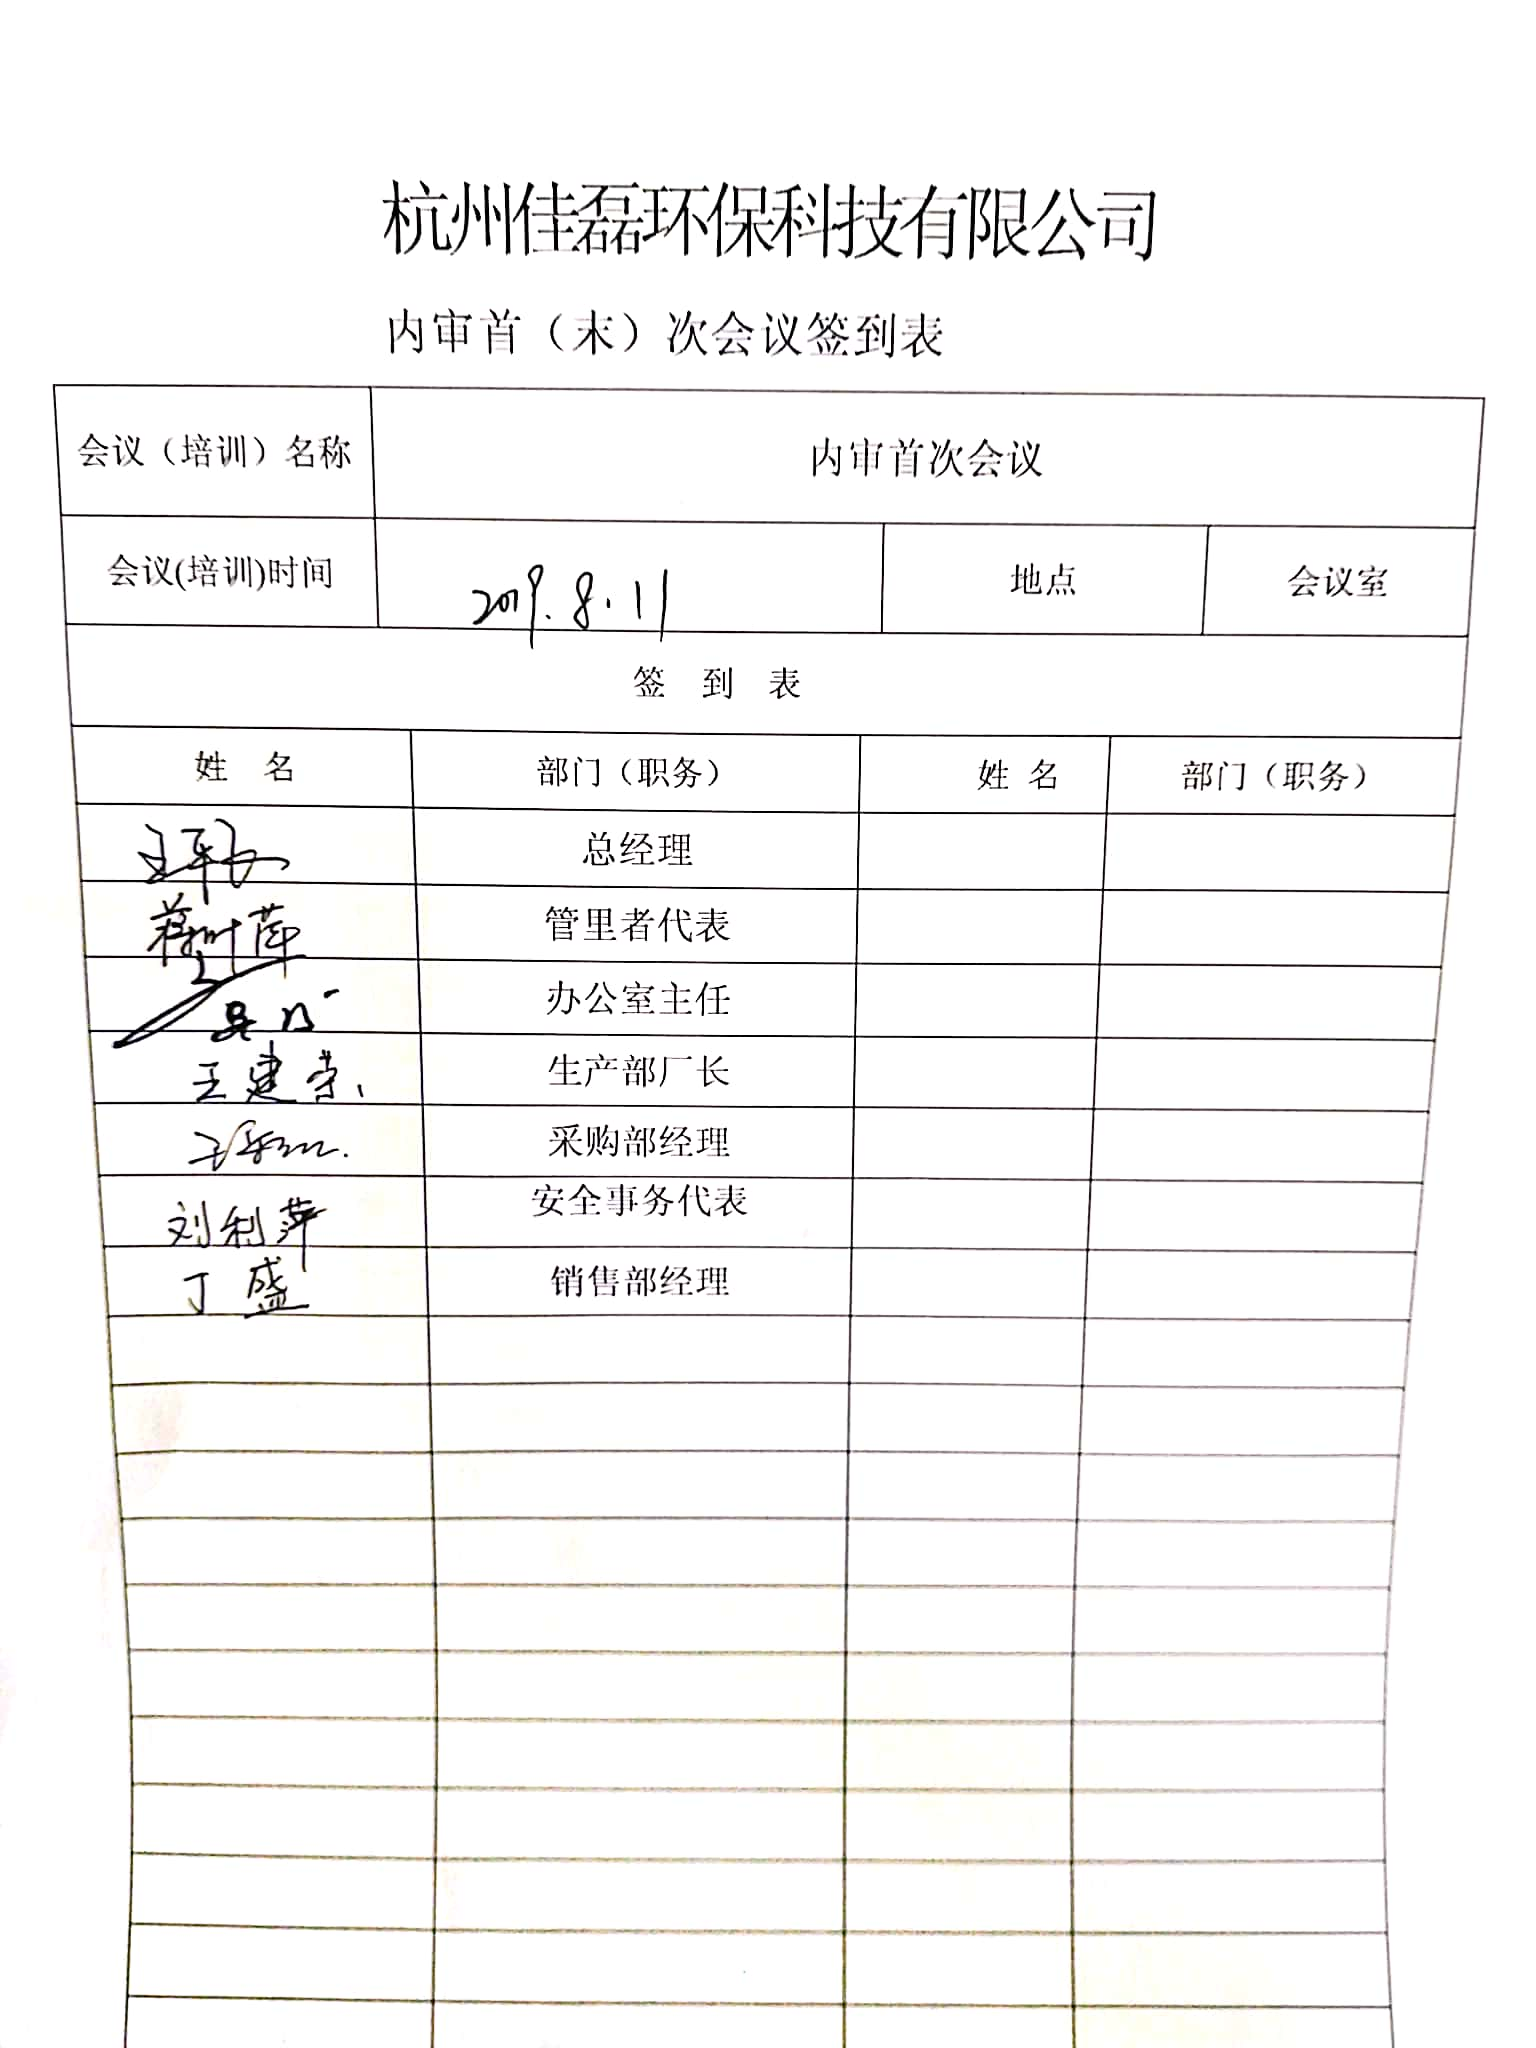 杭州佳磊环保科技有限公司
内审首（末）次会议签到表
会议（培训）名称 内审首次会议
会议(培训)时间 2019.8.11 地点 会议室
签 到 表
姓 名 部门（职务） 姓 名 部门（职务）
总经理
管里者代表
办公室主任
王建荣 生产部厂长
采购部经理
刘利萍 安全事务代表
丁盛 销售部经理